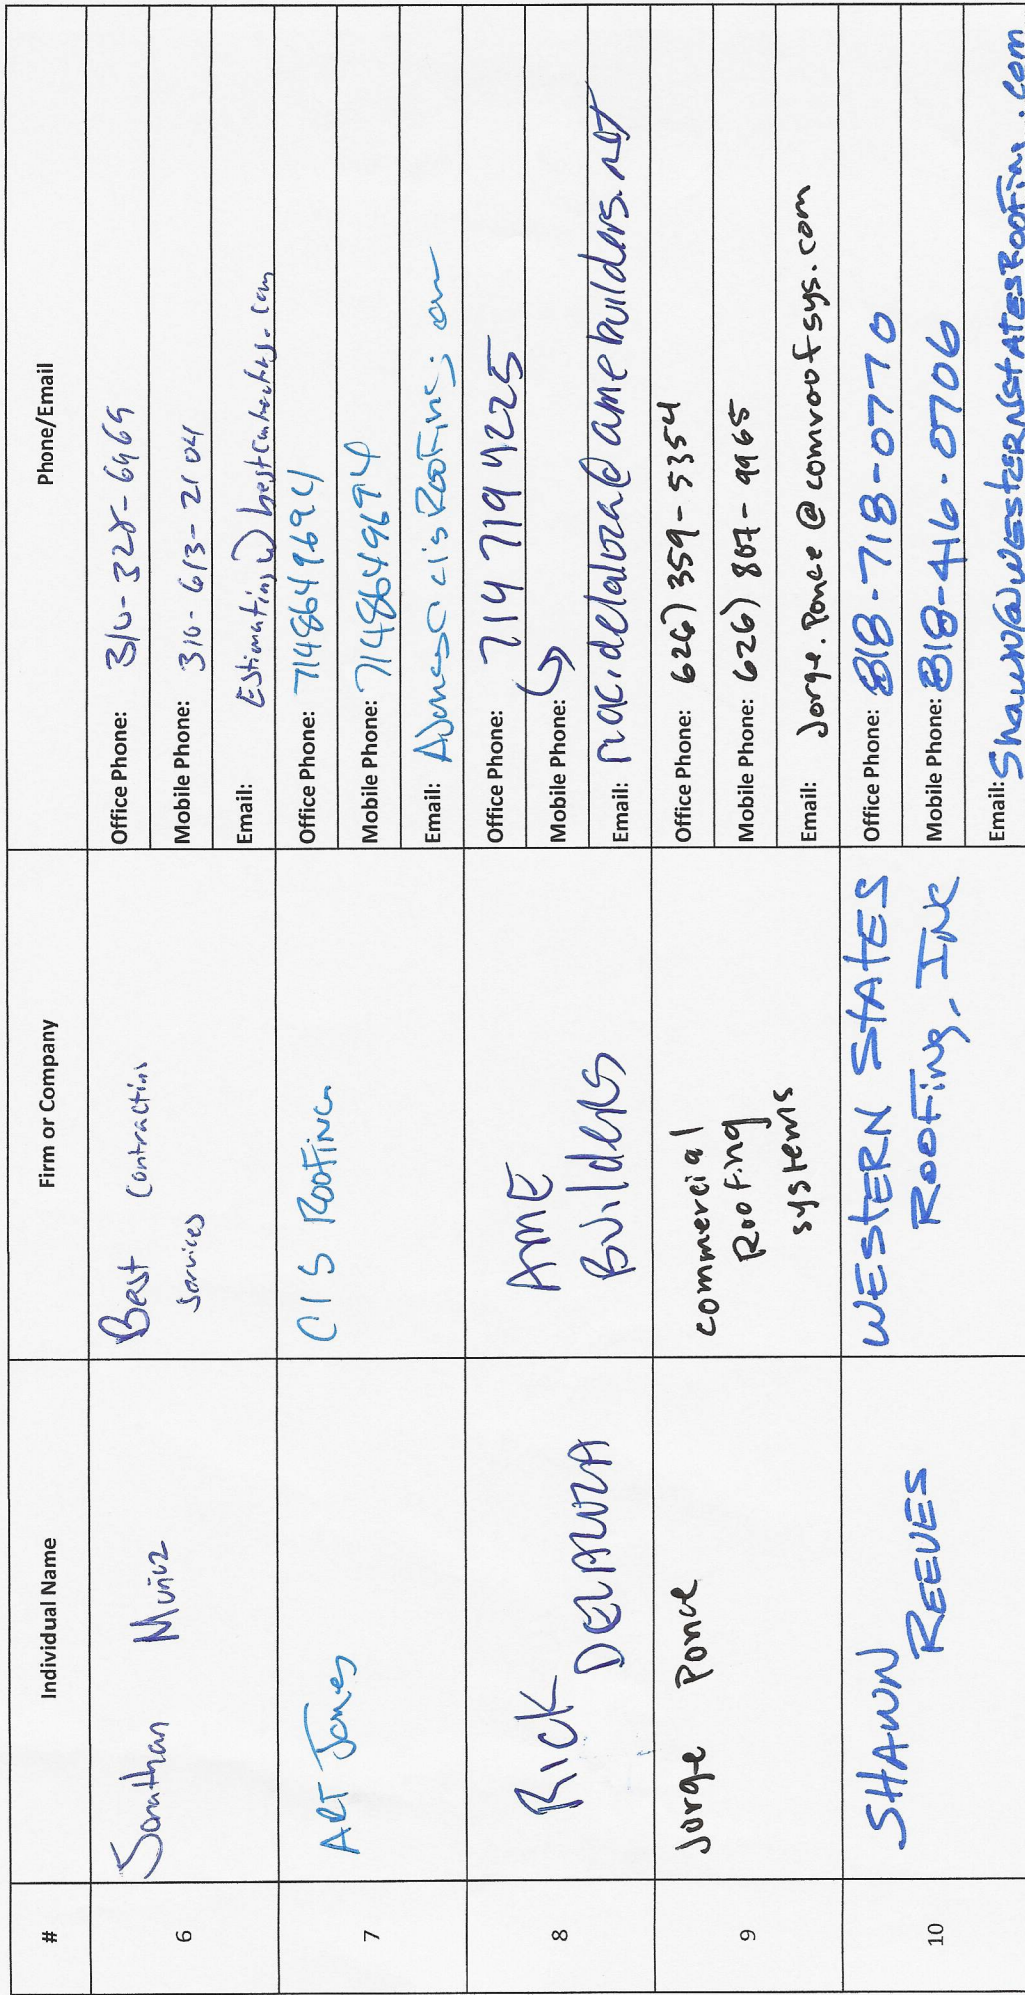 # Individual Name Firm or Company Phone/Email
6 Jonathan Muñiz
Best Contracting
Services
Office Phone: 310-328-6969
Mobile Phone: 310-613-2104
Email: Estimating@bestcontracting.com
7 ART Jones
CIS ROOFING
Office Phone: 7148649694
Mobile Phone: 7148649694
Email: AJones@cisRoofing.com
8 RICK
DELALOZA
AME
Builders
Office Phone: 714 719 4225
Mobile Phone:
Email: @amebuilders.net
9 Jorge Ponce
commercial
Roofing
systems
Office Phone: 626) 359-5354
Mobile Phone: 626) 807-9965
Email: Jorge.Ponce@comroofsys.com
10 SHAWN
REEVES
WESTERN STATES
ROOFING, INC
Office Phone: 818-718-0770
Mobile Phone: 818-416-0706
Email: Shawn@WESTERNSTATESROOFING.com